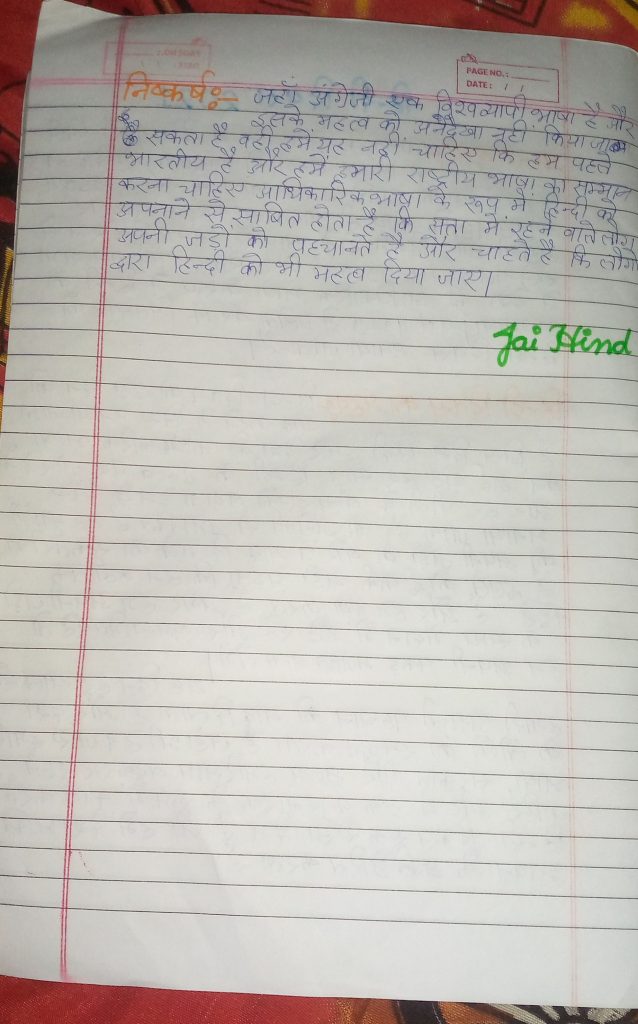 PAGE NO.:
DATE: / /
निष्कर्ष:- जहाँ अंग्रेजी एक विश्वव्यापी भाषा है और
इसके महत्व को अनदेखा नहीं किया जा
सकता है, वहीं हमें यह नहीं चाहिए कि हम पहले
भारतीय है और हमें हमारी राष्ट्रीय भाषा का सम्मान
करना चाहिए आधिकारिक भाषा के रूप में हिन्दी को
अपनाने से साबित होता है कि सता में रहने वाले लोग
अपनी जड़ों को पहचानते है और चाहते है कि लोगों
द्वारा हिन्दी को भी महत्व दिया जाए।
Jai Hind